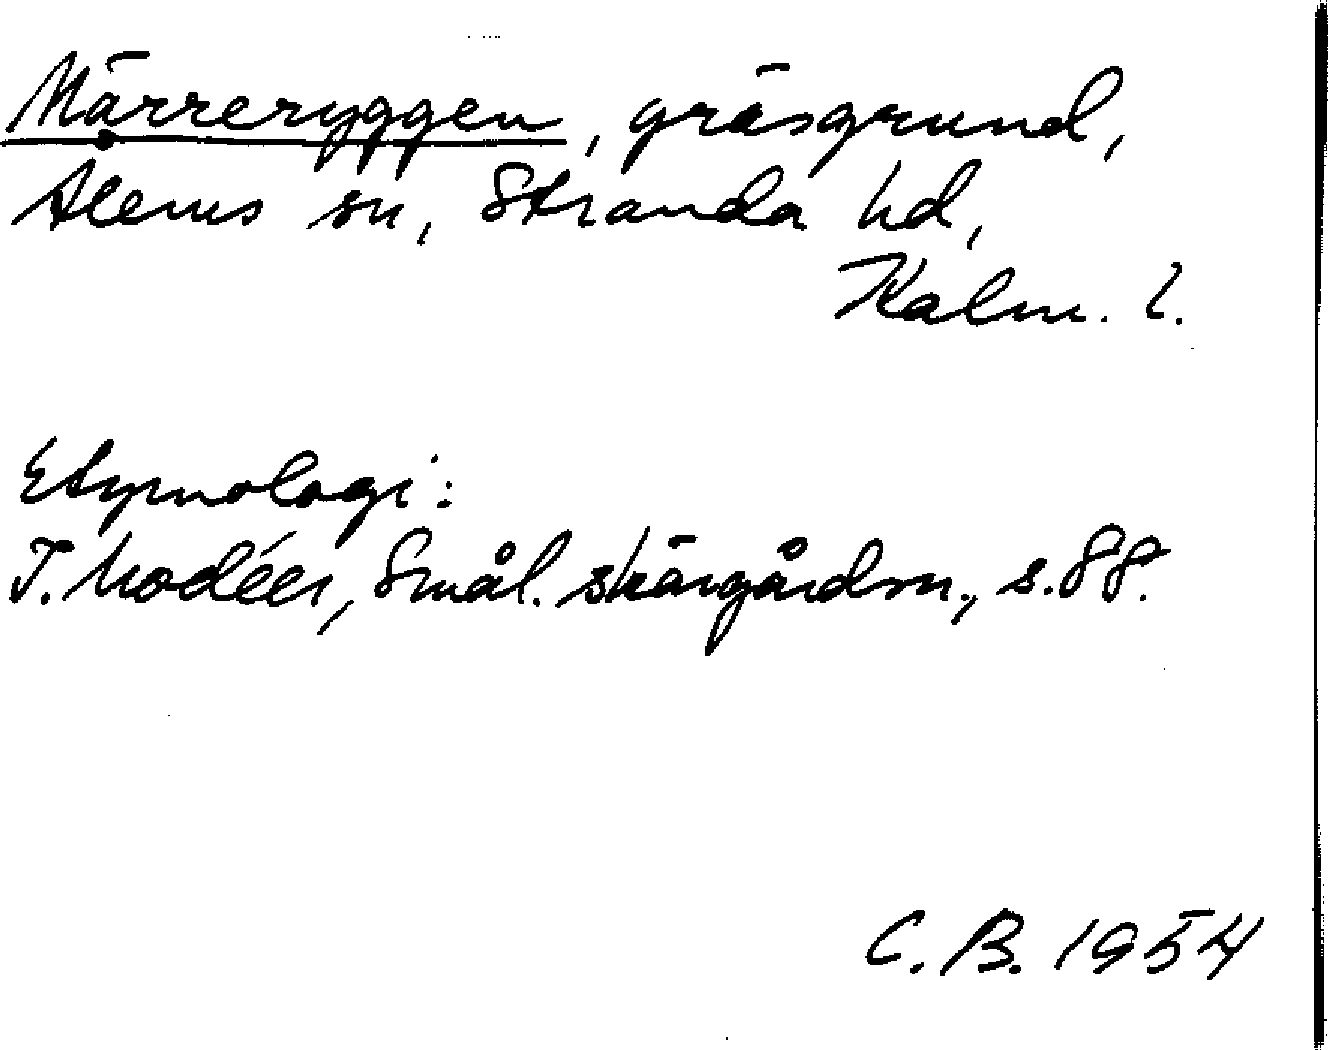 Märreryggen, gräsgrund,
Ålems sn, Stranda hd,
Kalm. l.
Etymologi:
I. Modéer, Smål. skärgårdsn., s. 88.
C. B. 1954